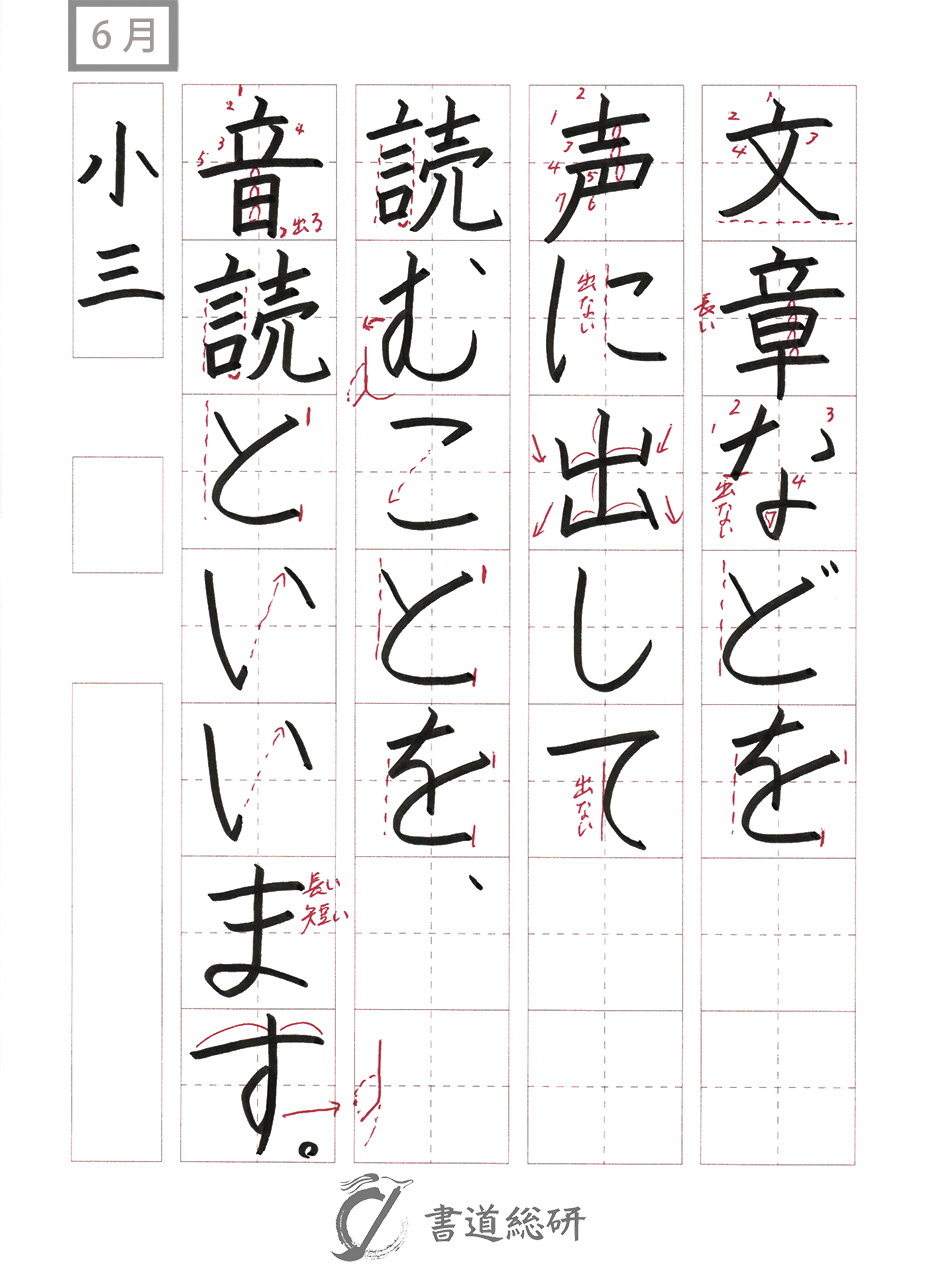 6月
文章などを
声に出して
読むことを、
音読といいます。
小三
長い
出ない
出ない
出ない
出る
長い
短い
書道総研